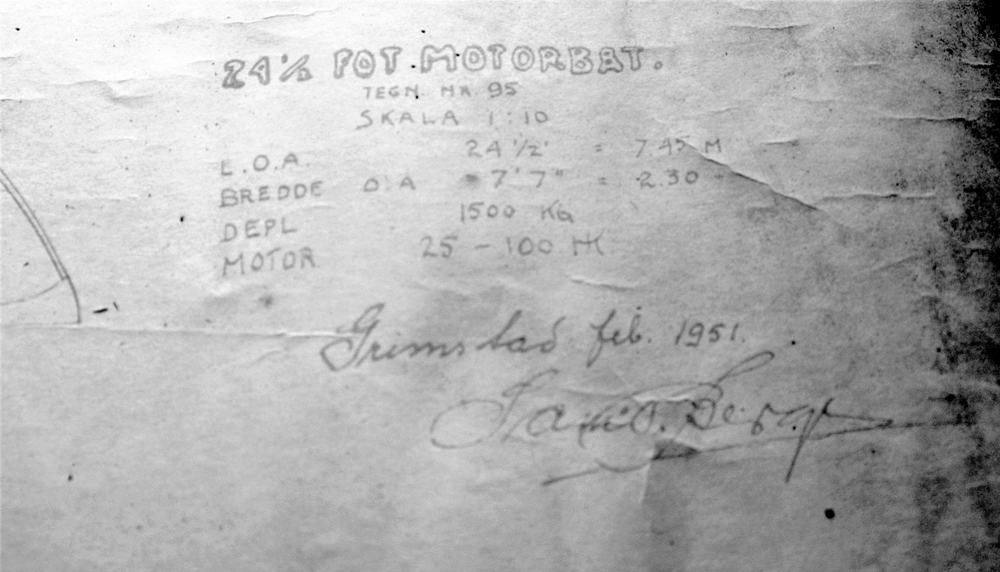 24 1/2 FOT MOTORBÅT.
TEGN. NR. 95
SKALA 1:10
L.O.A. 24 1/2' = 7.45 M
BREDDE O.A = 7'7" = 2.30 -
DEPL 1500 KG
MOTOR 25 - 100 HK
Grimstad feb. 1951.
Berg